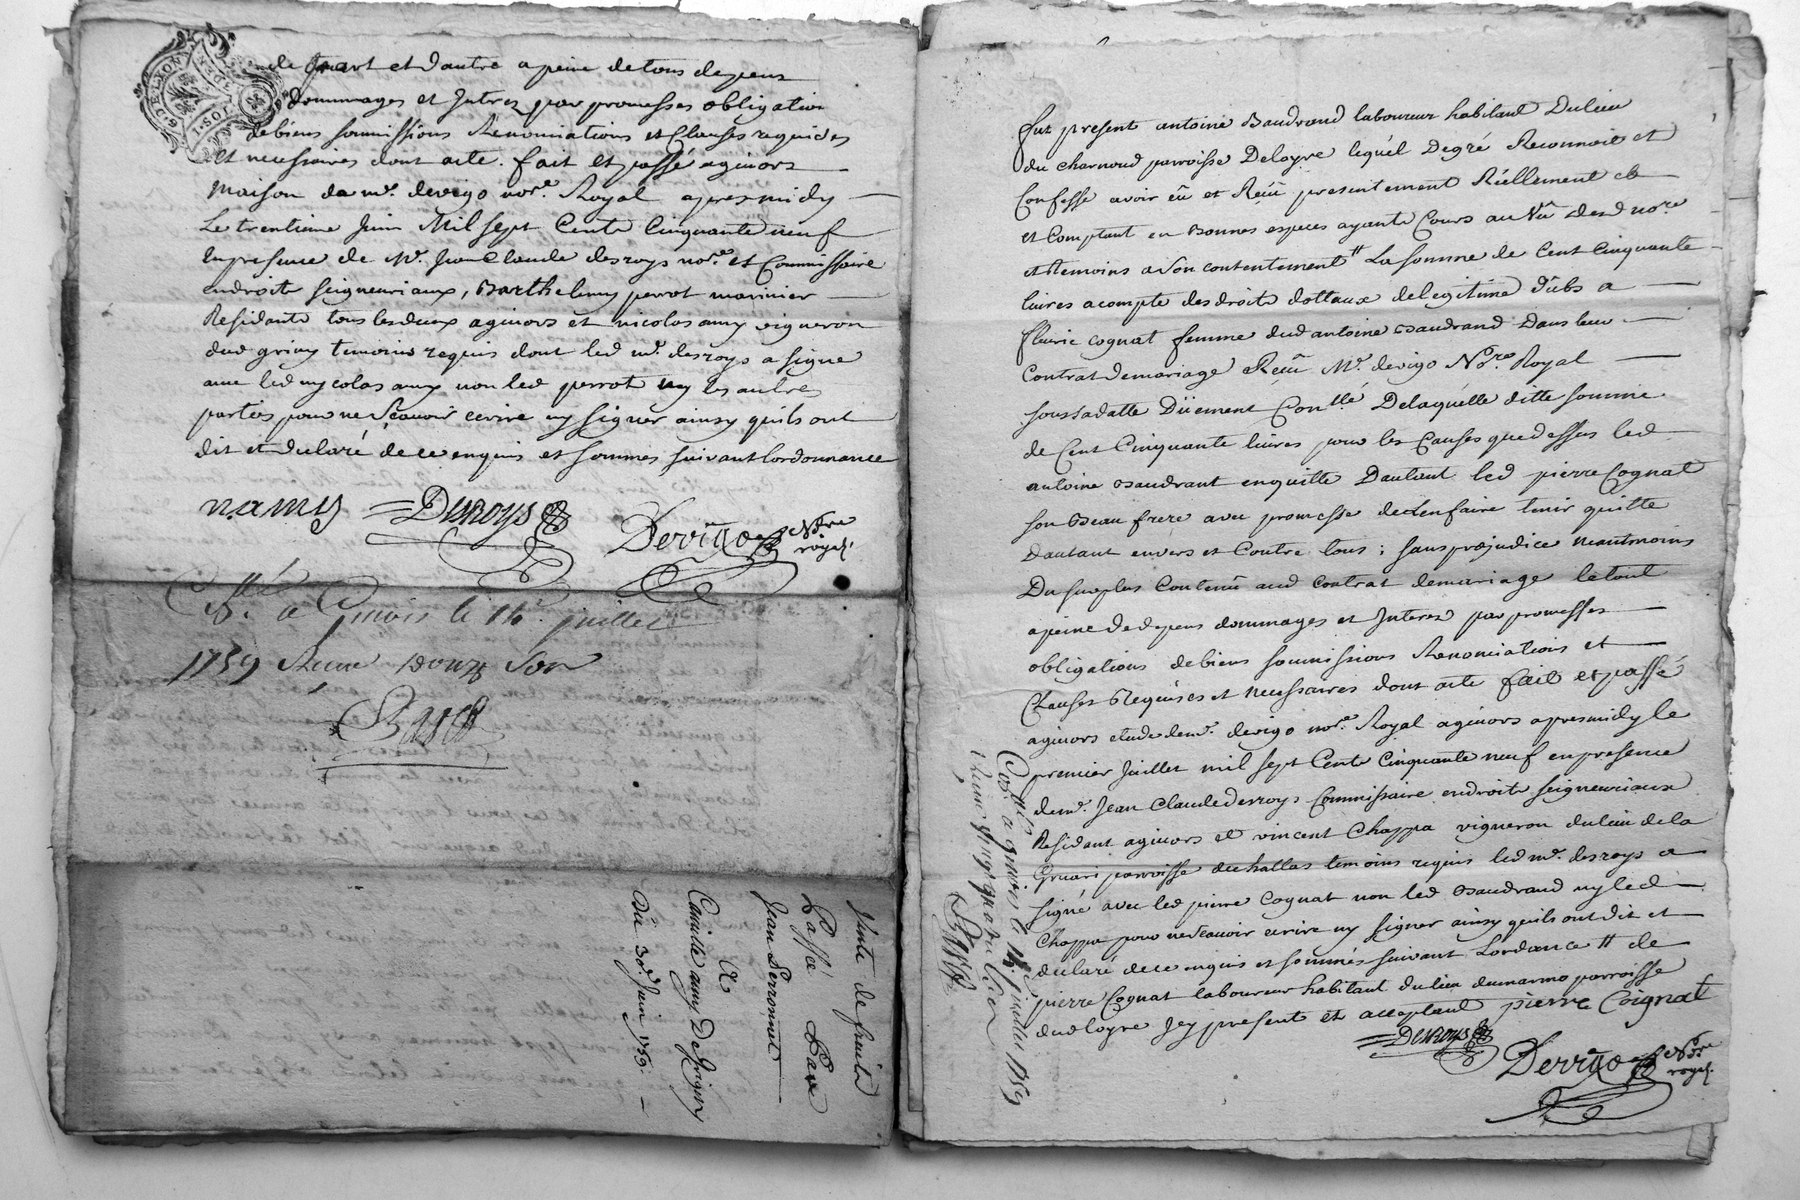 G. DE LYON
1 SOL
de part et dautre a peine de tous depens
dommages et Interez par promesses obligation
de biens soumissions Renonciations et Clauses requises
et necessaires dont acte. fait et passé a givors
maison de mr. devigo nore. Royal apres midy
Le trentieme Juin Mil sept Cents Cinquante neuf
En presence de Mr. Jean Claude desroys nore. et Commissaire
en droits seigneuriaux, Barthelemy perrot marinier
Residants tous les deux a givors et nicolas amy vigneron
dud grivy temoins requis dont led mr. desroys a signé
avec led nycolas amy non led perrot ny les autres
parties pour ne Scavoir ecrire ny signer ainsy quils ont
dit et declaré de ce enquis et sommés suivant lordonnance
n amy = Desroys
Devigo Nore
royal.
Cllé. a Givors le 14e. juillet
1759 Reçu douze Sols
Vente de fruits
Passée Par
Jean Perronnet
A
Camille amy De grigny
Du 30e. Juin 1759.
fut present antoine Baudrand laboureur habitant Du lieu
du charnoud parroisse Deloyre lequél De gré Reconnoit et
Confesse avoir eû et Reçû presentement Réellement et
et Comptant en Bonnes especes ayants Cours au Vû desd nore
et temoins a Son contentement La somme de Cent Cinquante
livres acompte des droits dottaux de legitime dûbs a
fleurie cognat femme dud antoine Baudrand Dans leur
Contrat de mariage Reçû Mr. devigo Nore. Royal
sous sa datte Düement Conllé Delaquélle ditte somme
de Cent Cinquante livres pour les Causes que dessus led
antoine Baudrant en quitte Dautant led pierre Cognat
son Beau frere avec promesse de len faire tenir quitte
dautant envers et Contre tous; sans prejudice neantmoins
Du surplus Contenû aud Contrat de mariage le tout
a peine De depens dommages et Interez par promesses
obligations de biens soumissions Renonciations et
Clauses Requises et necessaires dont acte fait et passé
a givors etude de mr. devigo nore. Royal a givors apres midy le
premier Juillet mil sept Cents Cinquante neuf en presence
de mr. Jean Claude desroys Commissaire en droits seigneuriaux
Residant a givors et vincent Chappa vigneron du lieu de la
parroisse de challas temoins requis led mr. desroys a
signé avec led pierre Cognat non led Baudrand ny led
Chappa pour ne scavoir ecrire ny signer ainsy quils ont dit et
declaré de ce enquis et sommés suivant Lordance de
pierre Cognat laboureur habitant du lieu dumarmo parroisse
dud loyre Jcy present et acceptant pierre Coignat
= Desroys
Devigo Nore
royal.
Conllé a givors le 14e. juillet 1759